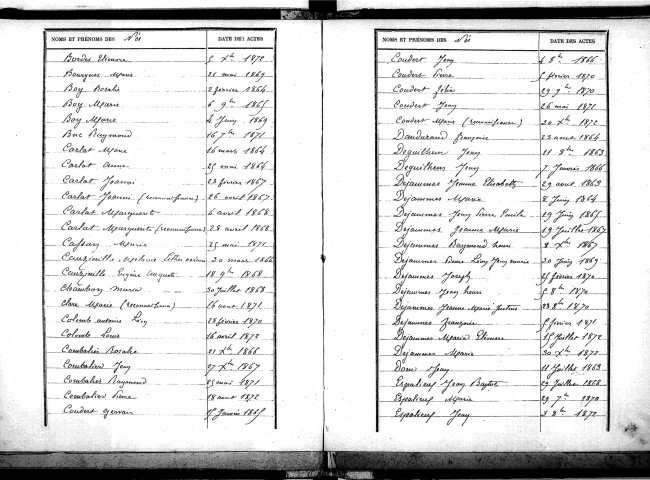 NOMS ET PRÉNOMS DES Nés DATE DES ACTES
Bordes Eléonore 5 Xbre 1872
Bourgues Marie 21 mai 1869
Boy Rosalie 2 février 1864
Boy Marie 6 9bre 1865
Boy Marie 4 Juin 1869
Buc Raymond 16 7bre 1871
Carlat Marie 16 mars 1864
Carlat Anne 25 mai 1864
Carlat Joanni 23 février 1867
Carlat Joanni (reconnaissance) 26 avril 1867
Carlat Marguerite 6 avril 1868
Carlat Marguerite (reconnaissance) 28 avril 1868
Marie 25 mai 1871
20 mars 1866
Eugène Auguste 18 9bre 1868
Chambon Maria 30 Juillet 1868
Clare Marie (reconnaissance) 16 aout 1871
Colomb antoine Léon 28 février 1870
Colomb Louis 16 avril 1872
Combalier Rosalie 21 Xbre 1866
Combalier Jean 27 Xbre 1867
Combalier Raymond 25 mai 1871
Combalier Pierre 18 aout 1872
Coudert Gervais 15 Janvier 1865
NOMS ET PRÉNOMS DES Nés DATE DES ACTES
Coudert Jean 4 8bre 1866
Coudert Pierre 5 février 1870
Coudert Félix 29 9bre 1870
Coudert Jean 26 mai 1871
Coudert Marie (reconnaissance) 20 Xbre 1872
Dandurand françoise 23 aout 1864
Deguilhem Jean 11 8bre 1863
Deguilhem Jean 7 Janvier 1866
Dejaumes Jeanne Elisabeth 29 aout 1863
Dejaumes Marie 8 Juin 1864
Dejaumes Jean Pierre Emile 19 Juin 1865
Dejaumes Jeanne Marie 19 Juillet 1867
Dejaumes Raymond 8 Xbre 1867
Dejaumes Pierre Léon Jean 30 Juin 1869
Dejaumes Joseph 25 février 1870
Dejaumes Jean henri 5 8bre 1870
Dejaumes Jeanne Marie Justine 23 8bre 1870
Dejaumes Françoise 5 février 1871
Dejaumes Maria 15 Juillet 1872
Dejaumes Marie 30 Xbre 1872
Jean 11 Juillet 1863
Espalieu Jean Baptiste 29 Juillet 1868
Espalieu Marie 29 7bre 1870
Espalieu Jean 2 8bre 1872